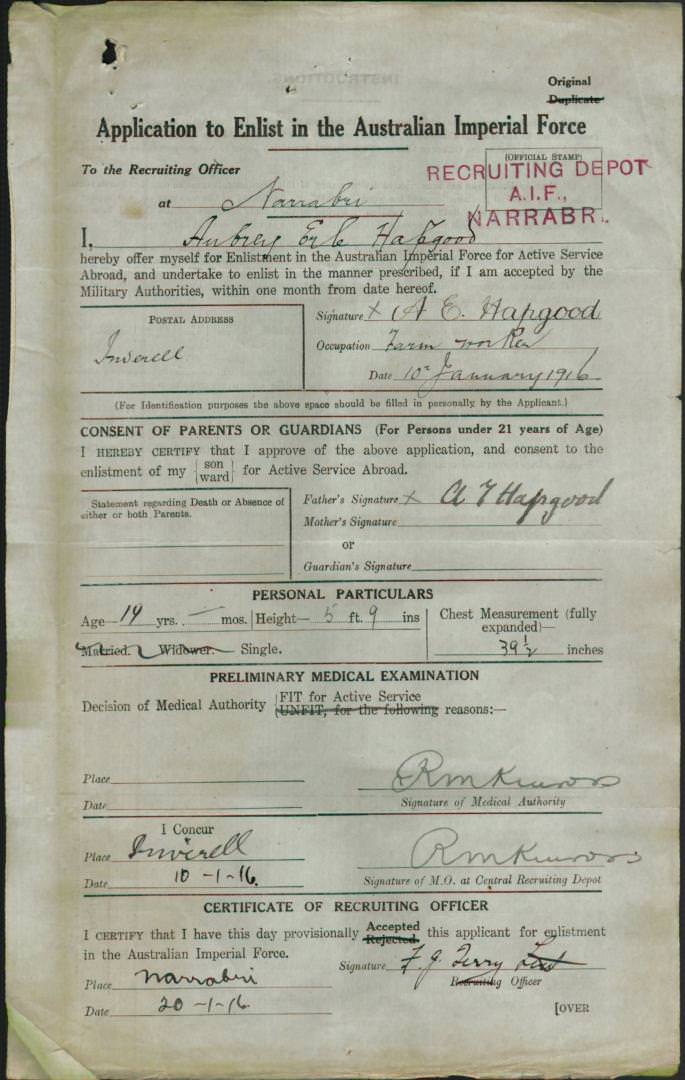 Original
Duplicate
Application to Enlist in the Australian Imperial Force
To the Recruiting Officer
(OFFICIAL STAMP)
RECRUITING DEPOT
A.I.F.,
NARRABRI.
at Narrabri
I, Aubrey Erle Hapgood
hereby offer myself for Enlistment in the Australian Imperial Force for Active Service
Abroad, and undertake to enlist in the manner prescribed, if I am accepted by the
Military Authorities, within one month from date hereof.
POSTAL ADDRESS
Inverell
Signature x A E. Hapgood
Occupation Farm worker
Date 10th January 1916
(For Identification purposes the above space should be filled in personally by the Applicant.)
CONSENT OF PARENTS OR GUARDIANS (For Persons under 21 years of Age)
I HEREBY CERTIFY that I approve of the above application, and consent to the
enlistment of my son ward for Active Service Abroad.
Statement regarding Death or Absence of
either or both Parents.
Father's Signature x Hapgood
Mother's Signature
or
Guardian's Signature
PERSONAL PARTICULARS
Age— 19 yrs. — mos. Height— 5 ft. 9 ins
Chest Measurement (fully
expanded)—
39 1/2 inches
Married. Widower. Single.
PRELIMINARY MEDICAL EXAMINATION
Decision of Medical Authority FIT for Active Service
UNFIT, for the following reasons:—
Place
Date
Signature of Medical Authority
I Concur
Place Inverell
Date 10-1-16.
Signature of M.O. at Central Recruiting Depot
CERTIFICATE OF RECRUITING OFFICER
I CERTIFY that I have this day provisionally Accepted Rejected this applicant for enlistment
in the Australian Imperial Force.
Signature F. J. Terry Lieut
Recruiting Officer
Place Narrabri
Date 20-1-16
[OVER